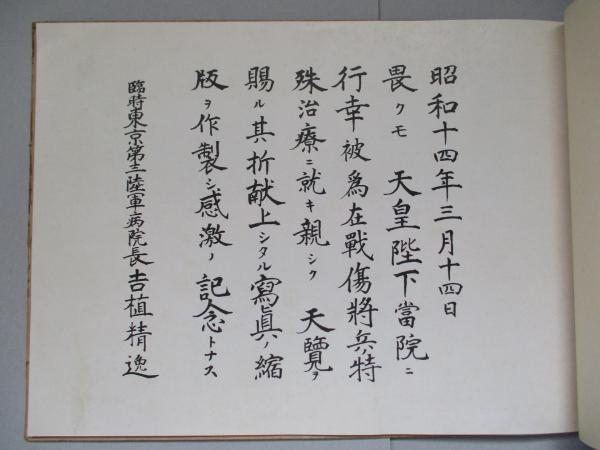 昭和十四年三月十四日
畏クモ 天皇陛下當院ニ
行幸被爲在戰傷將兵ノ特
殊治療ニ就キ親シク 天覽ヲ
賜ル其折献上シタル寫眞ノ縮
版ヲ作製シ感激ノ記念トナス
臨時東京第三陸軍病院長吉植精逸